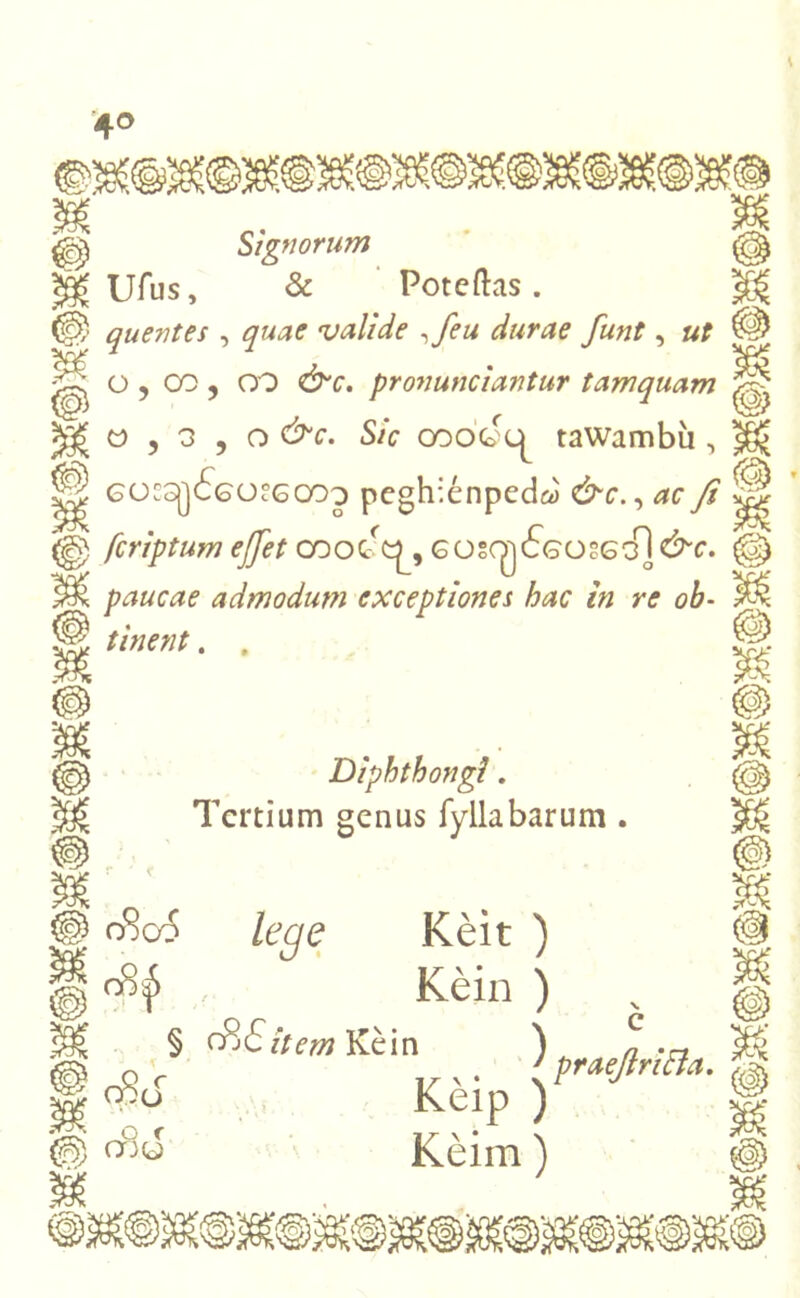 40
Signorum
Uſus, & Poteſtas .
quentes , quae valide , ſeu durae ſunt , ut
ပ , ထ , တ &c. pronunciantur tamquam
ဗ , ဒ , ဂ &c. Sic tawambù ,
peghi:énpedω &c. , ac ſi
ſcriptum eſſet &c.
paucae admodum exceptiones hac in re ob-
tinent .
Diphthongi .
Tertium genus ſyllabarum .
ကိတ် lege Kèit )
ကိန် Kèin )
§ ကိင် item Kèin ) è praeſtricta.
ကိပ် Kèip )
ကိမ် Kèim )